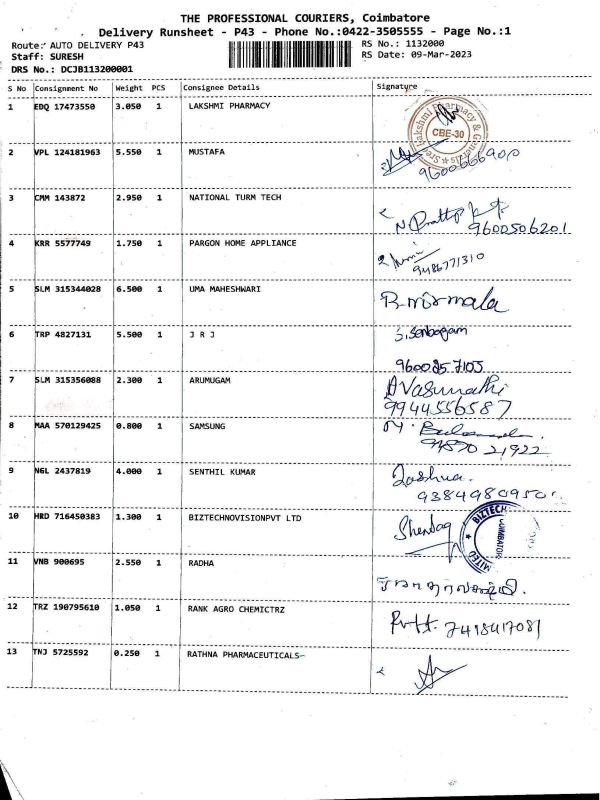 THE PROFESSIONAL COURIERS, Coimbatore
Delivery Runsheet - P43 - Phone No.:0422-3505555 - Page No.:1
Route: AUTO DELIVERY P43
RS No.: 1132000
Staff: SURESH
RS Date: 09-Mar-2023
DRS No.: DCJB113200001
S No Consignment No Weight PCS Consignee Details Signature
1 EDQ 17473550 3.050 1 LAKSHMI PHARMACY
Sree Lakshmi Pharmacy & Generals
CBE-30
2 VPL 124181963 5.550 1 MUSTAFA
9600666900
3 CMM 143872 2.950 1 NATIONAL TURM TECH
9600506201
4 KRR 5577749 1.750 1 PARGON HOME APPLIANCE
9486771310
5 SLM 315344028 6.500 1 UMA MAHESHWARI
R.nirmala
6 TRP 4827131 5.500 1 J R J
S.Senbagam
9600257105
7 SLM 315356088 2.300 1 ARUMUGAM
A Vasumathi
9944556587
8 MAA 570129425 0.800 1 SAMSUNG
9487021922
9 NGL 2437819 4.000 1 SENTHIL KUMAR
Joshua.
9384980950
10 HRD 716450383 1.300 1 BIZTECHNOVISIONPVT LTD
BIZTECH
COIMBATORE
11 VNB 900695 2.550 1 RADHA
12 TRZ 190795610 1.050 1 RANK AGRO CHEMICTRZ
7418417081
13 TNJ 5725592 0.250 1 RATHNA PHARMACEUTICALS